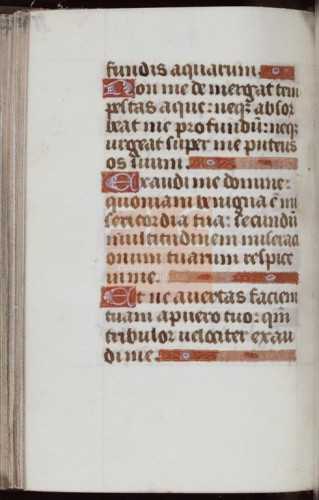 fundis aquarum.
Non me demergat tem
pestas aque: neq; absor
beat me profundū: neq;
urgeat super me puteus
os suum.
Exaudi me domine:
quoniam benigna ē mi
sericordia tua: secundū
multitudinem miserac
onum tuarum respice
in me.
Et ne avertas faciem
tuam a puero tuo: qm̄
tribulor velociter exau
di me.